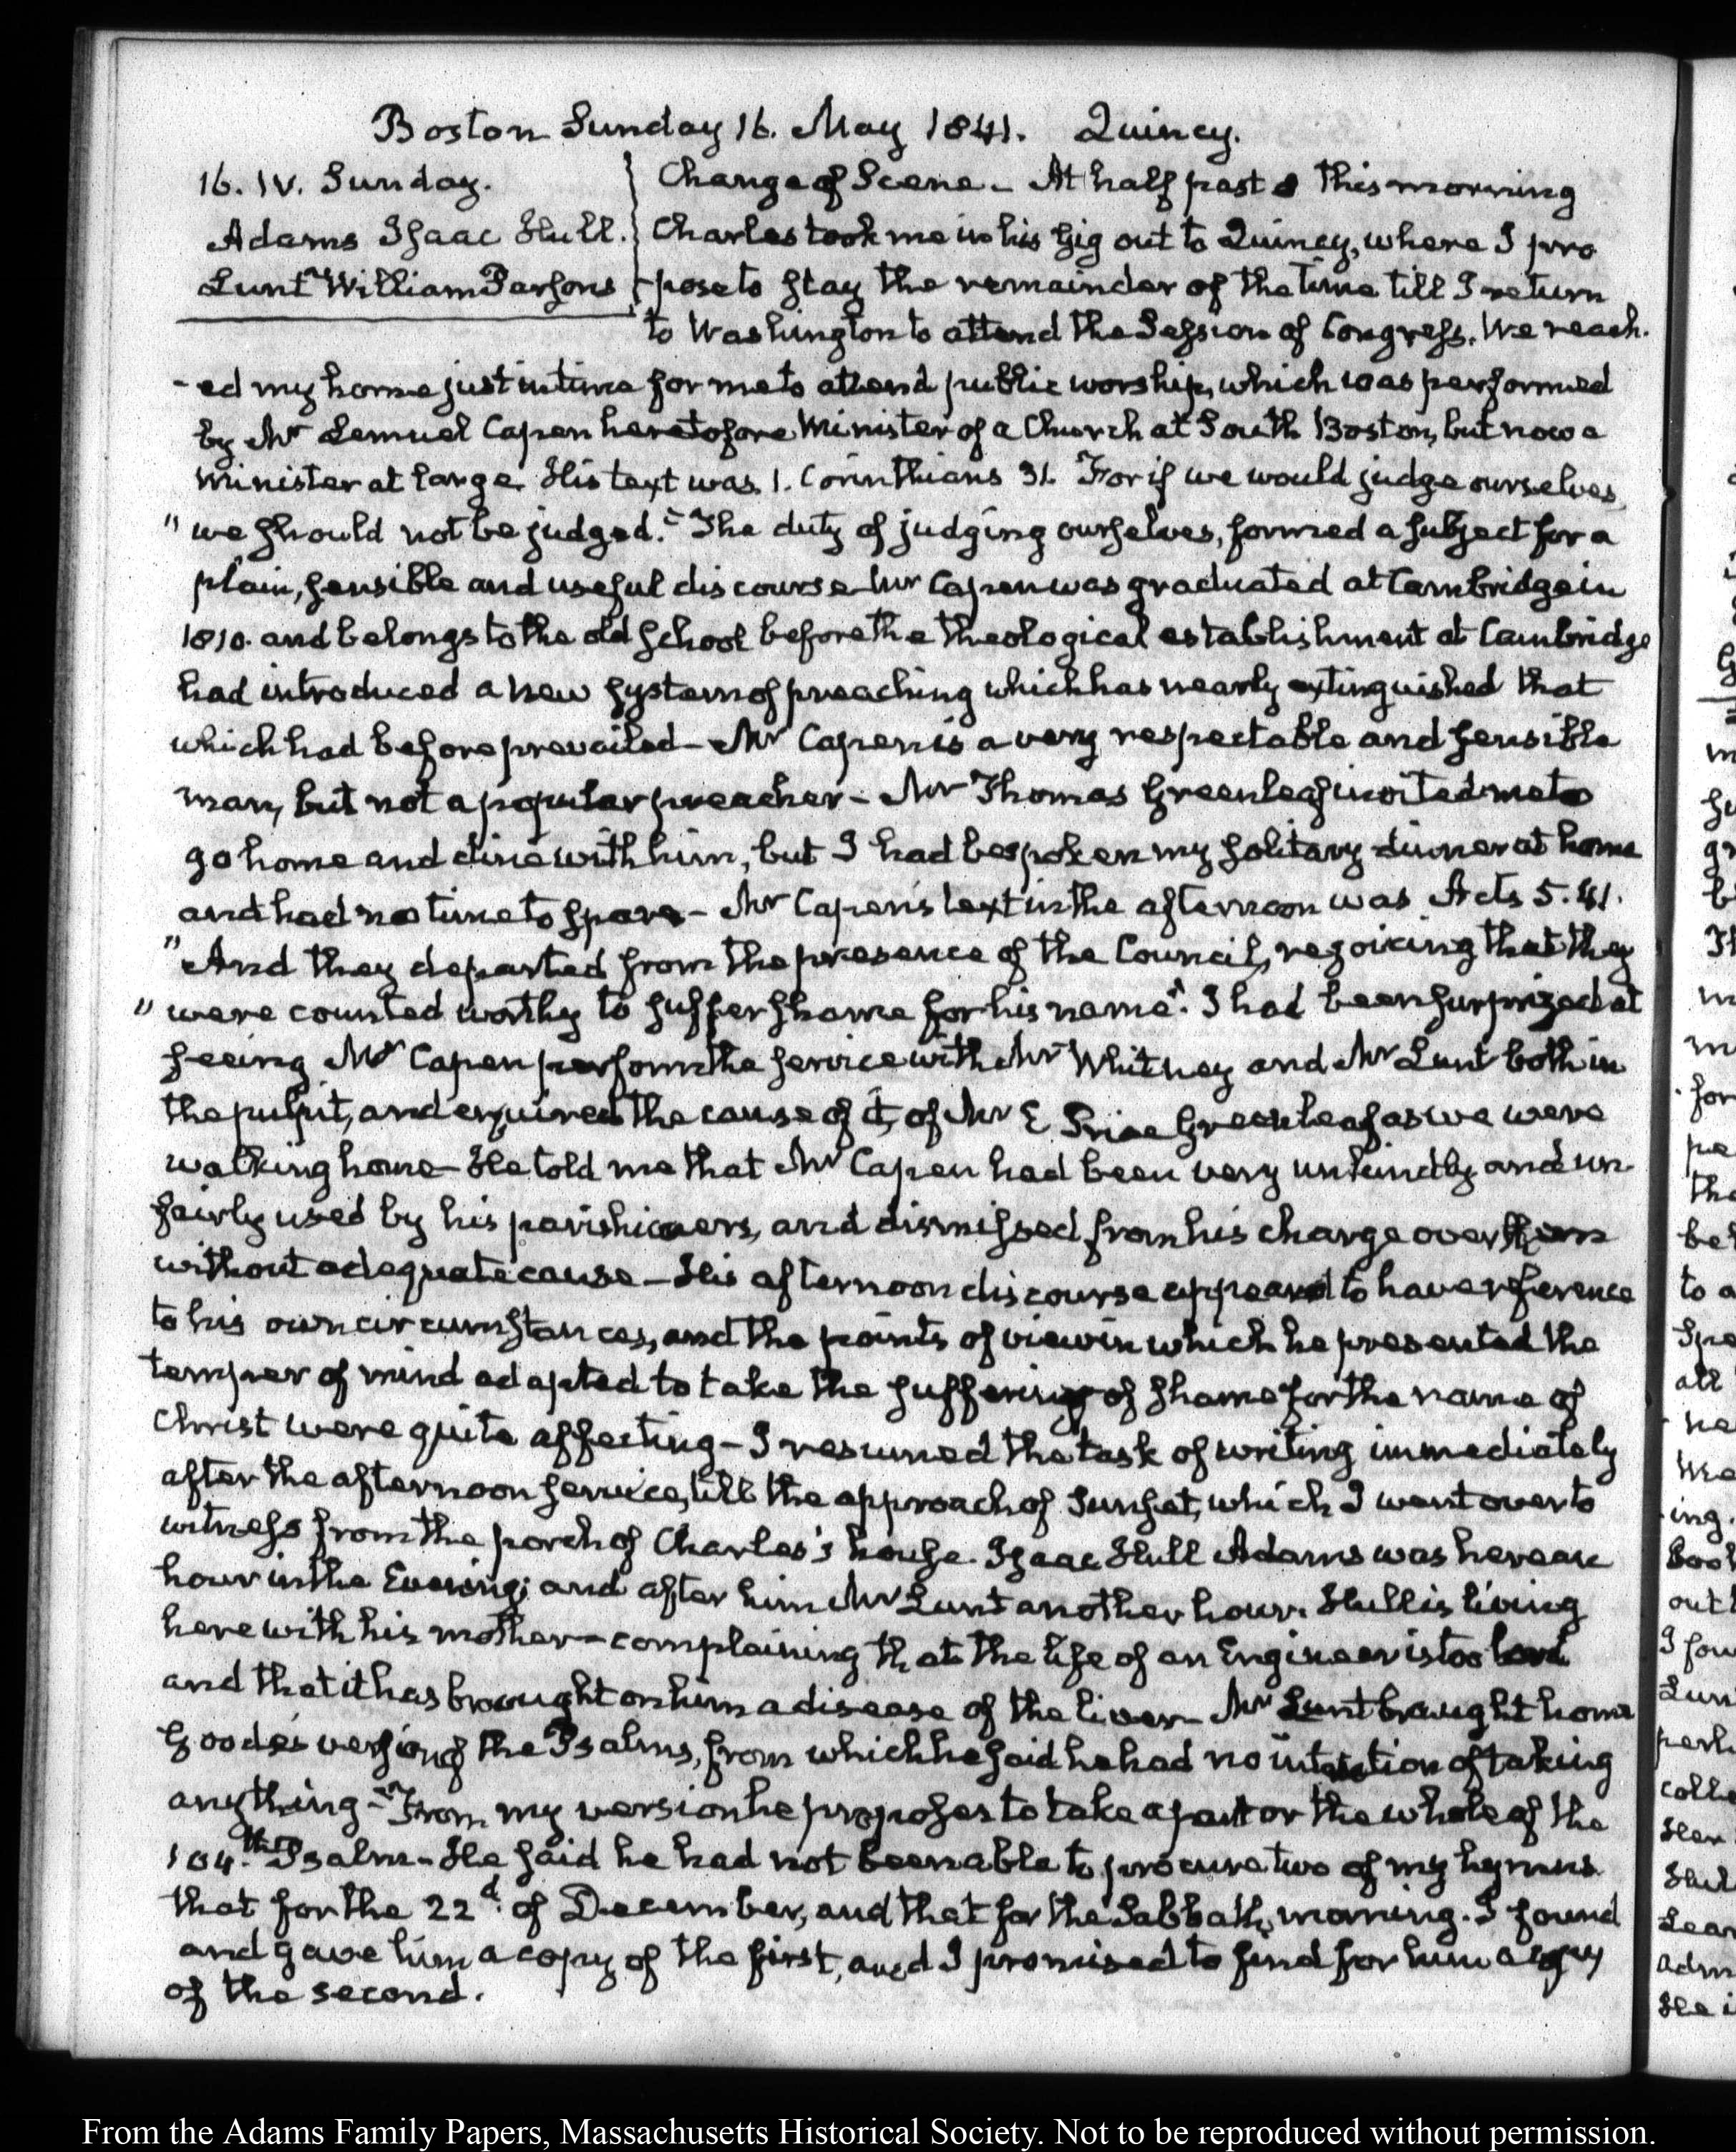 Boston Sunday 16. May 1841. Quincy.
16. IV. Sunday.
Adams Isaac Hull.
Lunt William Parsons
Change of Scene – At half past 8 this morning
Charles took me in his Gig out to Quincy, where I pro
-pose to stay the remainder of the time till I return
to Washington to attend the Session of Congress. We reach.
-ed my home just in time for me to attend public worship, which was performed
by Mr Lemuel Capen heretofore Minister of a Church at South Boston, but now a
minister at large. His text was 1. Corinthians 31. For if we would judge ourselves,
"we should not be judged." The duty of judging ourselves, formed a subject for a
plain, sensible and useful discourse – Mr Capen was graduated at Cambridge in
1810. and belongs to the old school before the theological establishment at Cambridge
had introduced a new system of preaching which has nearly extinguished that
which had before prevailed – Mr Capen is a very respectable and sensible
man, but not a popular preacher – Mr Thomas Greenleaf invited me to
go home and dine with him, but I had bespoken my solitary dinner at home
and had no time to spare – Mr Capen's text in the afternoon was Acts 5.41.
"And they departed from the presence of the Council, rejoicing that they
"were counted worthy to suffer shame for his name". I had been surprized at
seeing Mr Capen perform the service with Mr Whitney and Mr Lunt both in
the pulpit, and enquired the cause of it, of Mr E Price Greenleaf as we were
walking home – He told me that Mr Capen had been very unkindly and un-
fairly used by his parishioners, and dismissed from his charge over them
without adequate cause – His afternoon discourse appeared to have reference
to his own circumstances, and the points of view in which he presented the
temper of mind adapted to take the suffering of shame for the name of
Christ were quite affecting – I resumed the task of writing immediately
after the afternoon service, till the approach of Sunset, which I went over to
witness from the porch of Charles's house. Isaac Hull Adams was here an
hour in the Evening; and after him Mr Lunt another hour. Hull is living
here with his mother – complaining that the life of an Engineer is too hard
and that it has brought on him a disease of the liver – Mr Lunt brought home
Goode's version of the Psalms, from which he said he had no intention of taking
anything – From my version he proposes to take a part or the whole of the
104.th Psalm – He said he had not been able to procure two of my hymns
that for the 22d. of December, and that for the Sabbath morning. I found
and gave him a copy of the first, and I promised to find for him a copy
of the second.
From the Adams Family Papers, Massachusetts Historical Society. Not to be reproduced without permission.